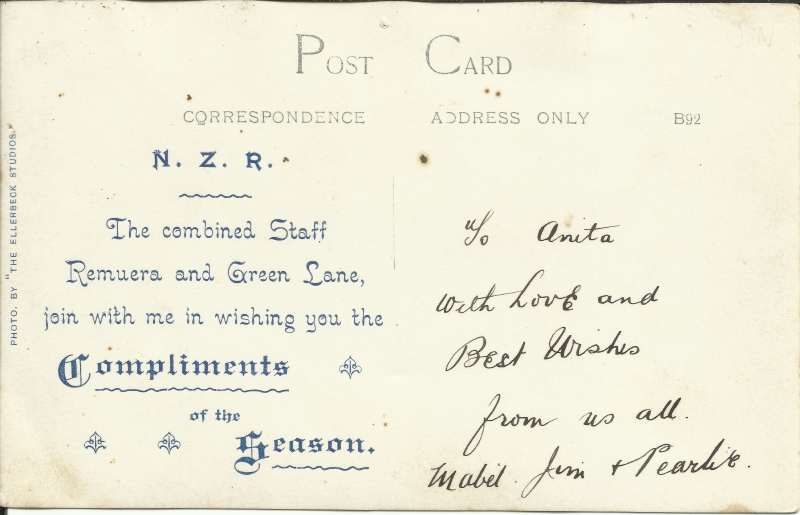 POST CARD
CORRESPONDENCE ADDRESS ONLY B92
PHOTO. BY "THE ELLERBECK STUDIOS."
N. Z. R.
The combined Staff
Remuera and Green Lane,
join with me in wishing you the
Compliments
of the
Season.
To Anita
With Love and
Best Wishes
from us all.
Mabel. Jim + Pearlie.